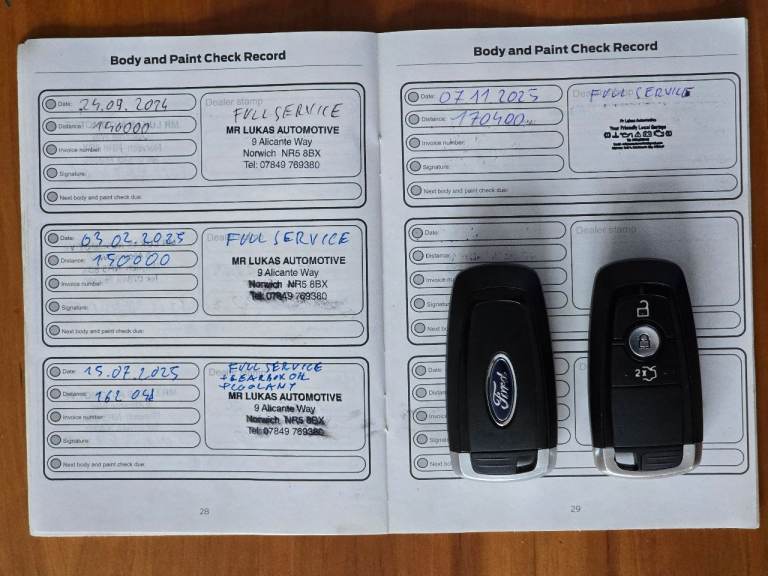 Body and Paint Check Record
Date: 24.09.2024
Distance: 140000
Invoice number:
Signature:
Next body and paint check due:
Dealer stamp
FULL SERVICE
MR LUKAS AUTOMOTIVE
9 Alicante Way
Norwich NR5 8BX
Tel: 07849 769380
Date: 03.02.2025
Distance: 150000
Invoice number:
Signature:
Next body and paint check due:
FULL SERVICE
MR LUKAS AUTOMOTIVE
9 Alicante Way
Norwich NR5 8BX
Tel: 07849 769380
Date: 15.07.2025
Distance: 162 041
Invoice number:
Signature:
Next body and paint check due:
FULL SERVICE
+GEARBOX OIL
+COOLANT
MR LUKAS AUTOMOTIVE
9 Alicante Way
Norwich NR5 8BX
Tel: 07849 769380
28
Body and Paint Check Record
Date: 07 11 2025
Distance: 170400
Invoice number:
Signature:
Next body and paint check due:
FULL SERVICE
Your Friendly Local Garage
Date:
Dealer stamp
Distance:
Invoice
Signature
Next bo
Date:
Distance:
Invoice
Signature
Next bo
Ford
2x
29